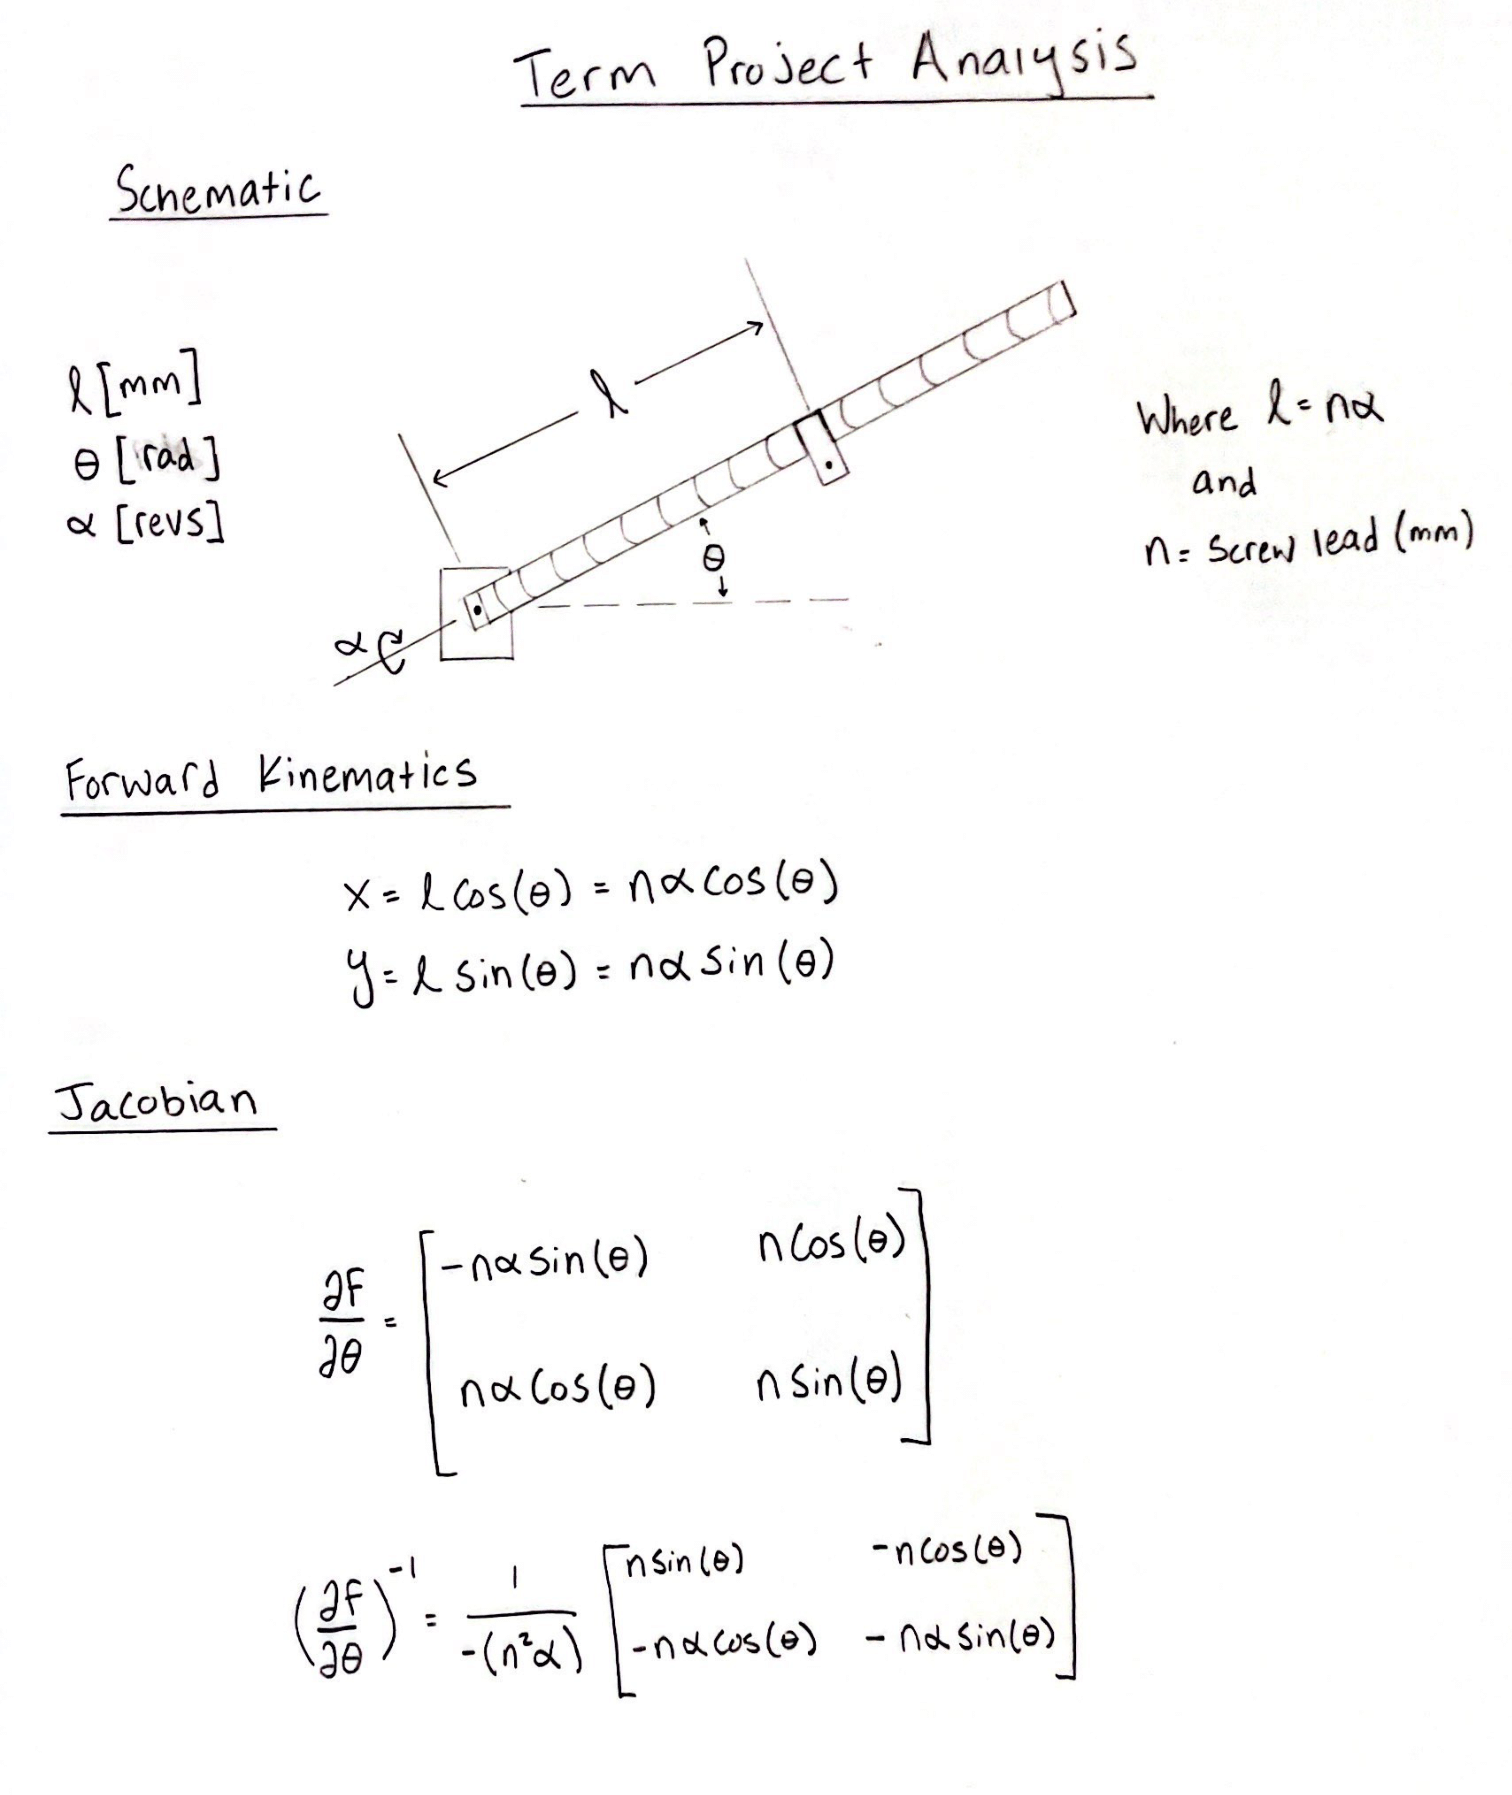 Term Project Analysis
Schematic
l [mm]
θ [rad]
α [revs]
l
θ
α
Where l = nα
and
n = Screw lead (mm)
Forward Kinematics
x = l cos(θ) = nα cos(θ)
y = l sin(θ) = nα sin(θ)
Jacobian
∂F/∂θ = [-nα sin(θ) n cos(θ)
nα cos(θ) n sin(θ)]
(∂F/∂θ)^-1 = 1/-(n²α) [n sin(θ) -n cos(θ)
-nα cos(θ) -nα sin(θ)]